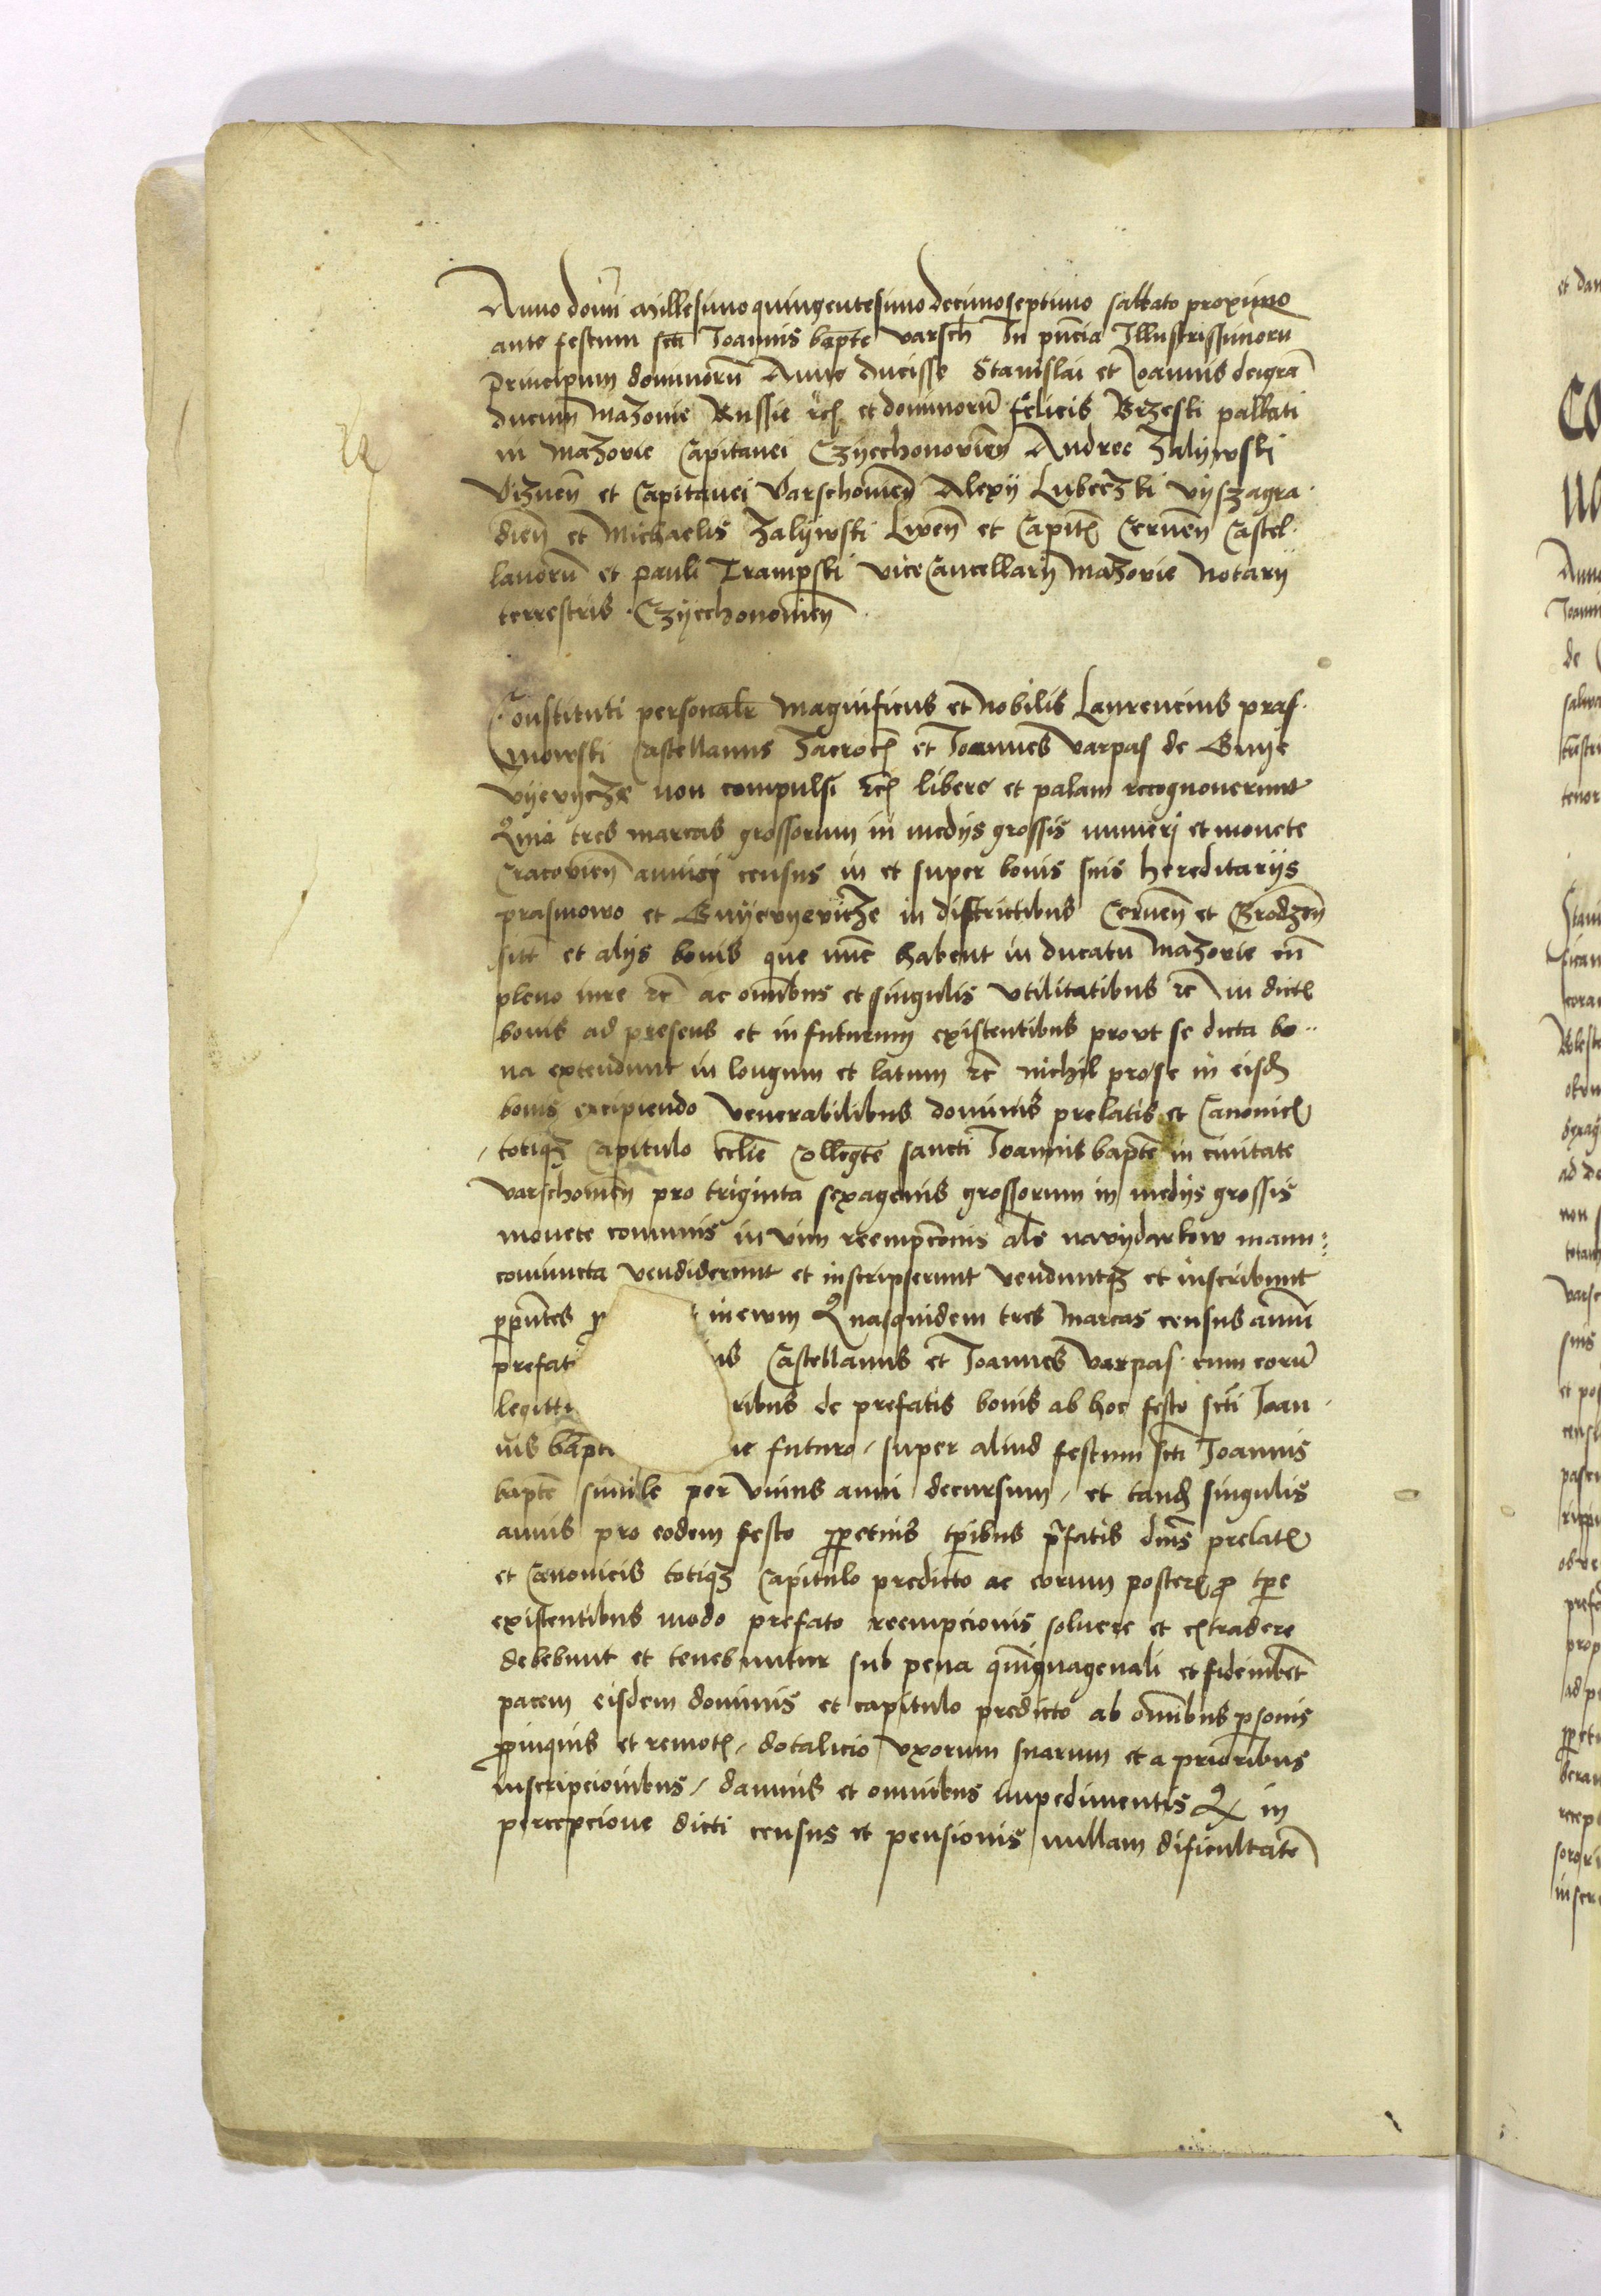 Anno domi Millesimo quingentesimo decimoseptimo sabbato proximo
ante festum scti Joannis bapte Varsch In pncia Illustrissimoru
principum dominoru Anne ducisse Stanislai et Joannis dei gra
ducum Mazovie Russie etc et dominoru Felicis Brzeski pallati
ni Mazovie Capitanei Czyechonovien Andree Zalywski
Viznen et Capitanei Varschovien Alexy Lubeczki Vyszagra
dien et Michaelis Zalywski Liven et Capit Cernen Castel
lanoru et pauli Trampski viceCancellarij Mazovie Notarij
terrestris Czyechonovien
Constituti personalr Magnificus et Nobilis Laurencius pras
mowski Castellanus Zacroc et Joannes Varpas de Gnye
vyevycze non compulsi etc libere et palam recognoverunt
Quia tres marcas grossorum in medijs grossis numeri et monete
Cracovien annuj census in et super bonis suis hereditarijs
prasmowo et Gnyevyevicze in districtibus Cernen et Grodzen
sitt et alijs bonis que nunc habent in ducatu Mazovie cu
pleno iure etc ac omnibus et singulis vtilitatibus etc in dict
bonis ad presens et in futurum existentibus provt se dicta bo
na extendunt in longum et latum etc nichil pro se in eisd
bonis excipiendo venerabilibus dominis prelatis et Canonic
totiqz Capitulo eclie Collegte sancti Joannis bapte in civitate
Varschovien pro triginta sexagenis grossorum in medijs grossis
monete communis in vim reempconis als na vydarkow manu
coniuncta vendiderunt et inscripserunt venduntqz et inscribunt
ppntes p in ewm Quasquidem tres Marcas census annui
prefat us Castellanus et Joannes Varpas cum eoru
legitti ribus de prefatis bonis ab hoc festo scti Joan
nis bapti ie futuro super aliud festum scti Joannis
bapte simile per vnius anni decursum et tand singulis
annis pro eodem festo ppetuis tpibus pfatis dnis prelat
et Canonicis totiqz Capitulo predicto ac eorum poster p tpe
existentibus modo prefato reempcionis soluere et extradere
debebunt et tenebuntur sub pena quinquagenali et fideiubet
pacem eisdem dominis et capitulo predicto ab omnibus psonis
ppinquis et remot dotalicio vxorum suarum et a prioribus
inscripcionibus damnis et omnibus impedimentis Q in
percepcione dicti census et pensionis nullam dificultate